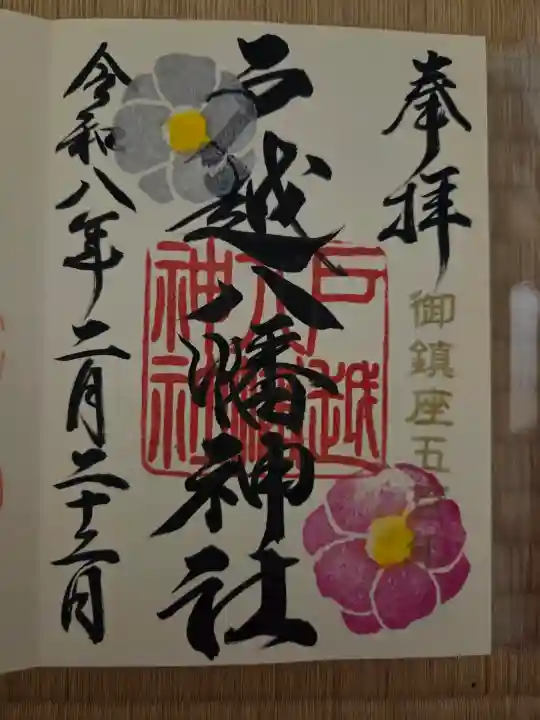 奉拝
御鎮座五百年
戸越八幡神社
戸越八幡神社
令和八年二月二十三日